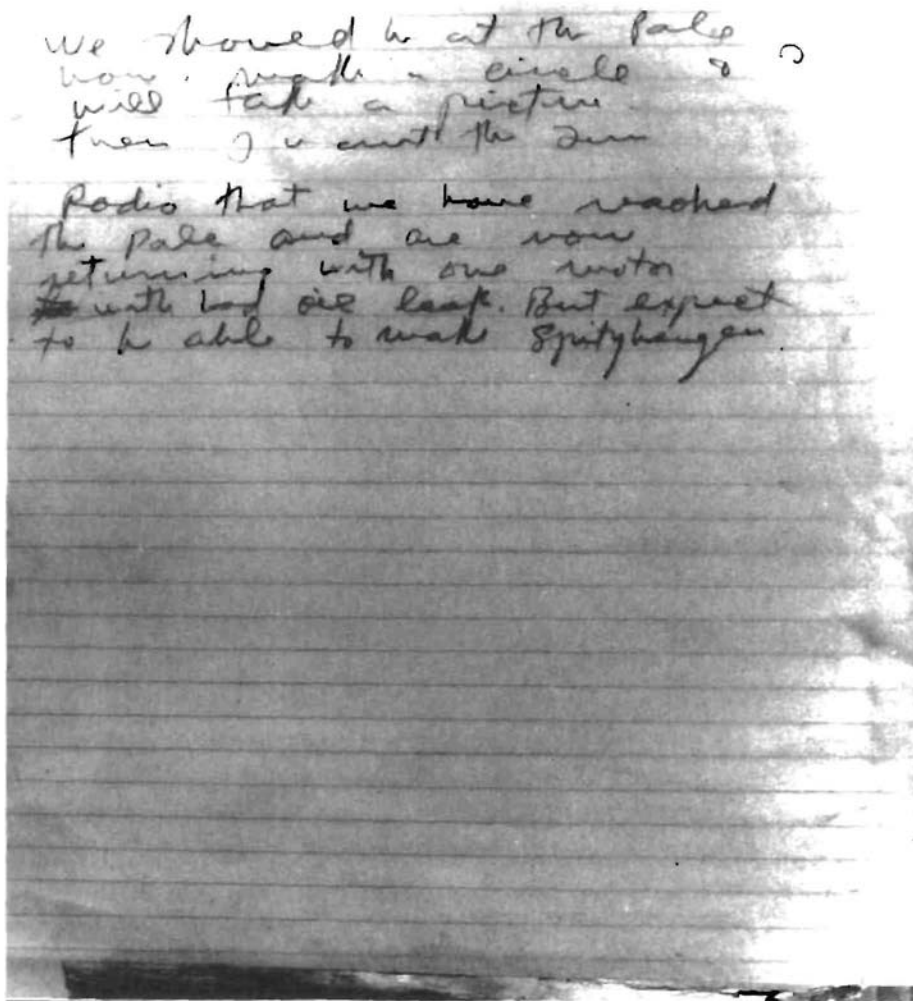 We should be at the Pole
now. make a circle & I
will take a picture
then I want the sun
Radio that we have reached
the pole and are now
returning with one motor
with bad oil leak. But expect
to be able to make Spitzbergen